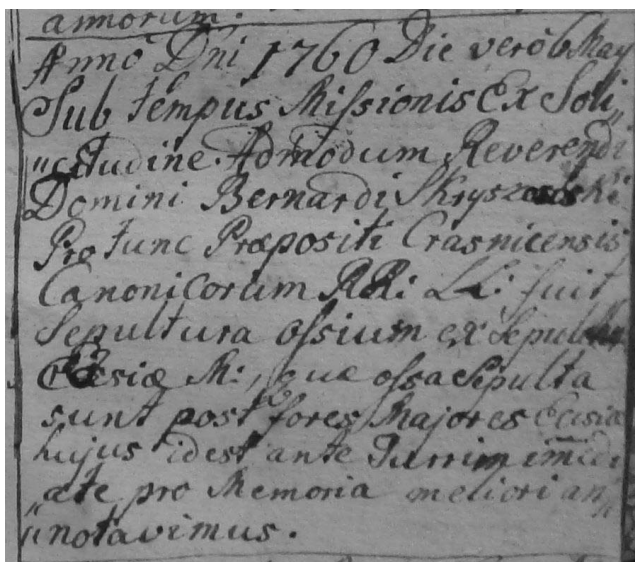 annorum.
Anno Dni 1760 Die vero 6 May
Sub tempus Missionis Ex Soli„
„citudine Admodum Reverendi
Domini Bernardi
Pro tunc Præpositi Crasnicensis
Canonicorum RRi LLi: fuit
Sepultura ossium ex Sepulchr
Ecclesiæ M:, quæ ossa Sepulta
sunt post fores Majores Ecisiæ
hujus idest ante Turrim imedi
„ate pro Memoria meliori an„
„notavimus.